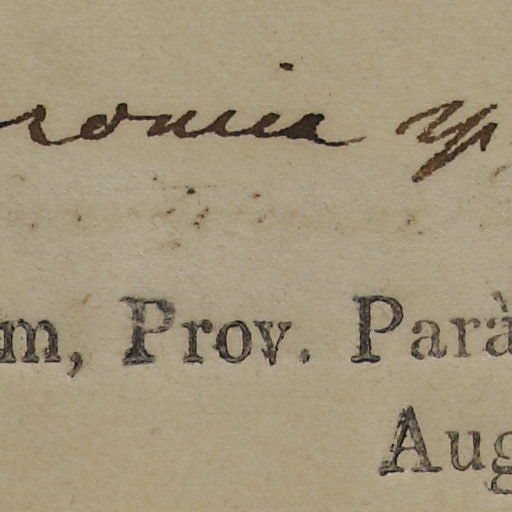 ronia
m, Prov. Parà
Aug